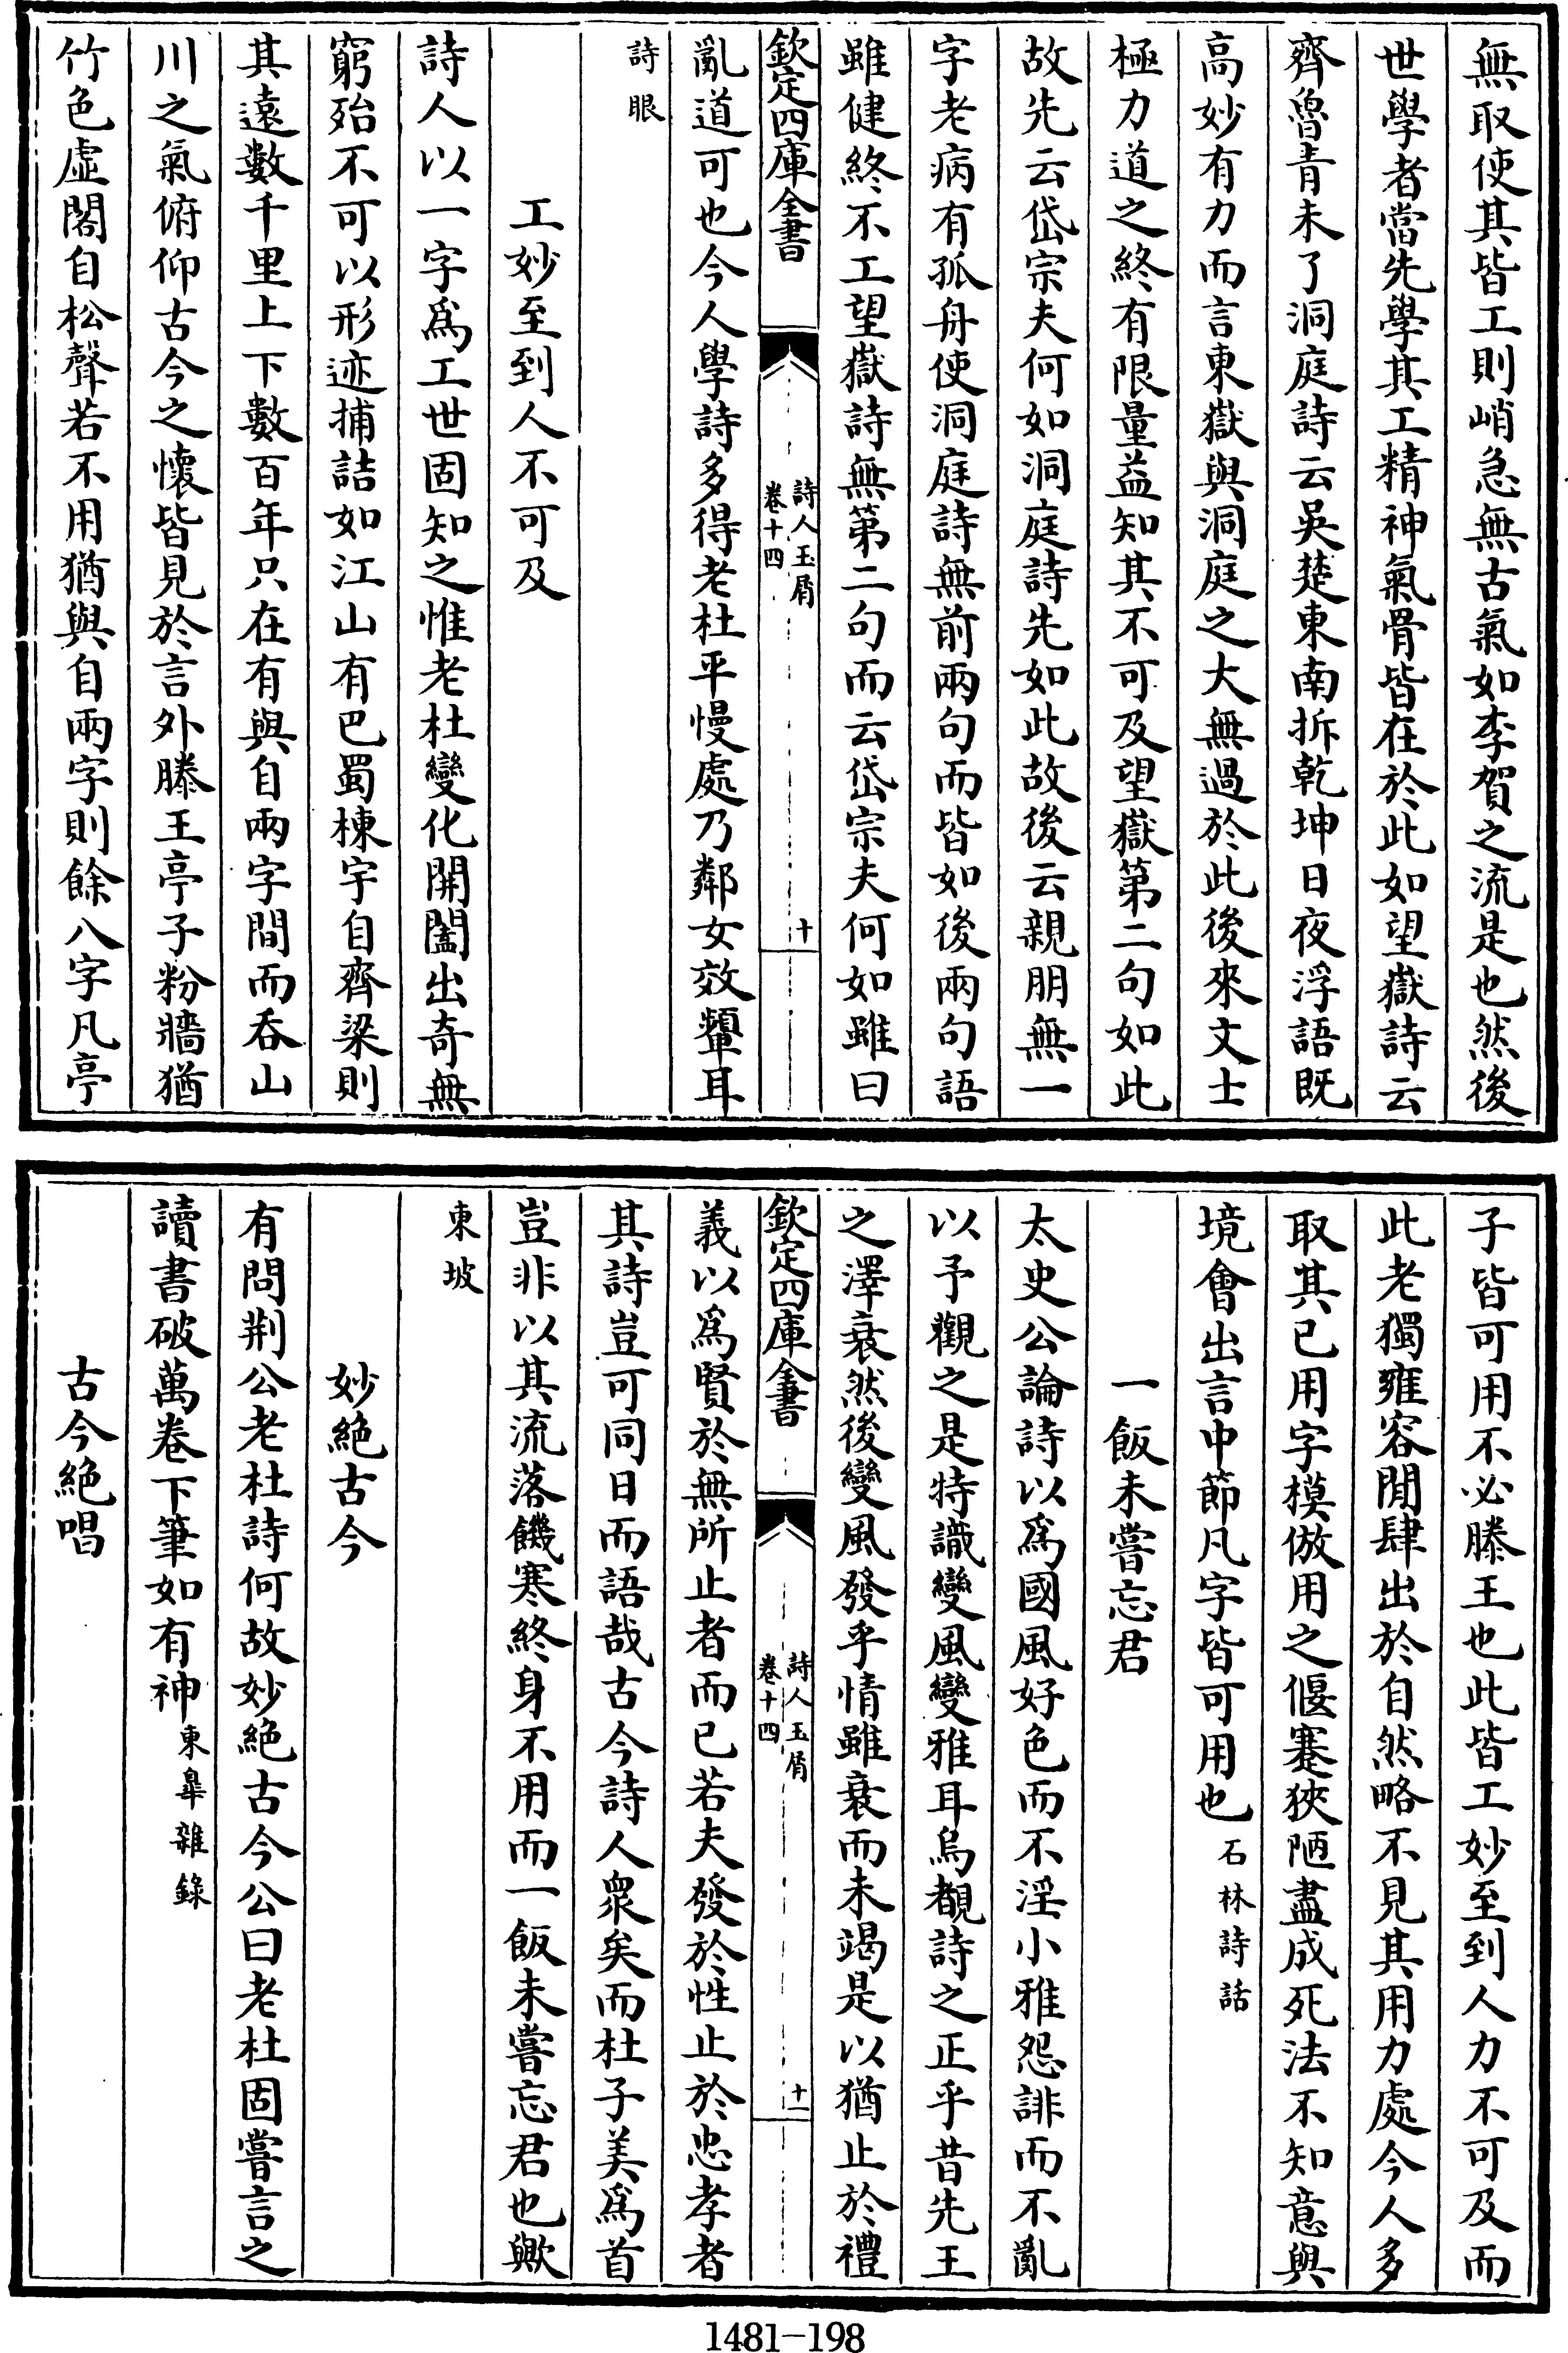 無取使其皆工則峭急無古氣如李賀之流是也然後
世學者當先學其工精神氣骨皆在於此如望嶽詩云
齊魯青未了洞庭詩云吳楚東南拆乾坤日夜浮語既
高妙有力而言東嶽與洞庭之大無過於此後來文士
極力道之終有限量益知其不可及望嶽第二句如此
故先云岱宗夫何如洞庭詩先如此故後云親朋無一
字老病有孤舟使洞庭詩無前兩句而皆如後兩句語
雖健終不工望嶽詩無第二句而云岱宗夫何如雖曰
欽定四庫全書
詩人玉屑
卷十四
十
亂道可也今人學詩多得老杜平慢處乃鄰女效顰耳
詩眼
工妙至到人不可及
詩人以一字爲工世固知之惟老杜變化開闔出奇無
窮殆不可以形迹捕詰如江山有巴蜀棟宇自齊梁則
其遠數千里上下數百年只在有與自兩字間而吞山
川之氣俯仰古今之懷皆見於言外滕王亭子粉牆猶
竹色虛閣自松聲若不用猶與自兩字則餘八字凡亭
子皆可用不必滕王也此皆工妙至到人力不可及而
此老獨雍容閒肆出於自然略不見其用力處今人多
取其已用字模倣用之偃蹇狹陋盡成死法不知意與
境會出言中節凡字皆可用也石林詩話
一飯未嘗忘君
太史公論詩以爲國風好色而不淫小雅怨誹而不亂
以予觀之是特識變風變雅耳烏覩詩之正乎昔先王
之澤衰然後變風發乎情雖衰而未竭是以猶止於禮
欽定四庫全書
詩人玉屑
卷十四
十一
義以爲賢於無所止者而已若夫發於性止於忠孝者
其詩豈可同日而語哉古今詩人衆矣而杜子美爲首
豈非以其流落饑寒終身不用而一飯未嘗忘君也歟
東坡
妙絶古今
有問荆公老杜詩何故妙絶古今公曰老杜固嘗言之
讀書破萬卷下筆如有神東皐雜錄
古今絶唱
1481-198